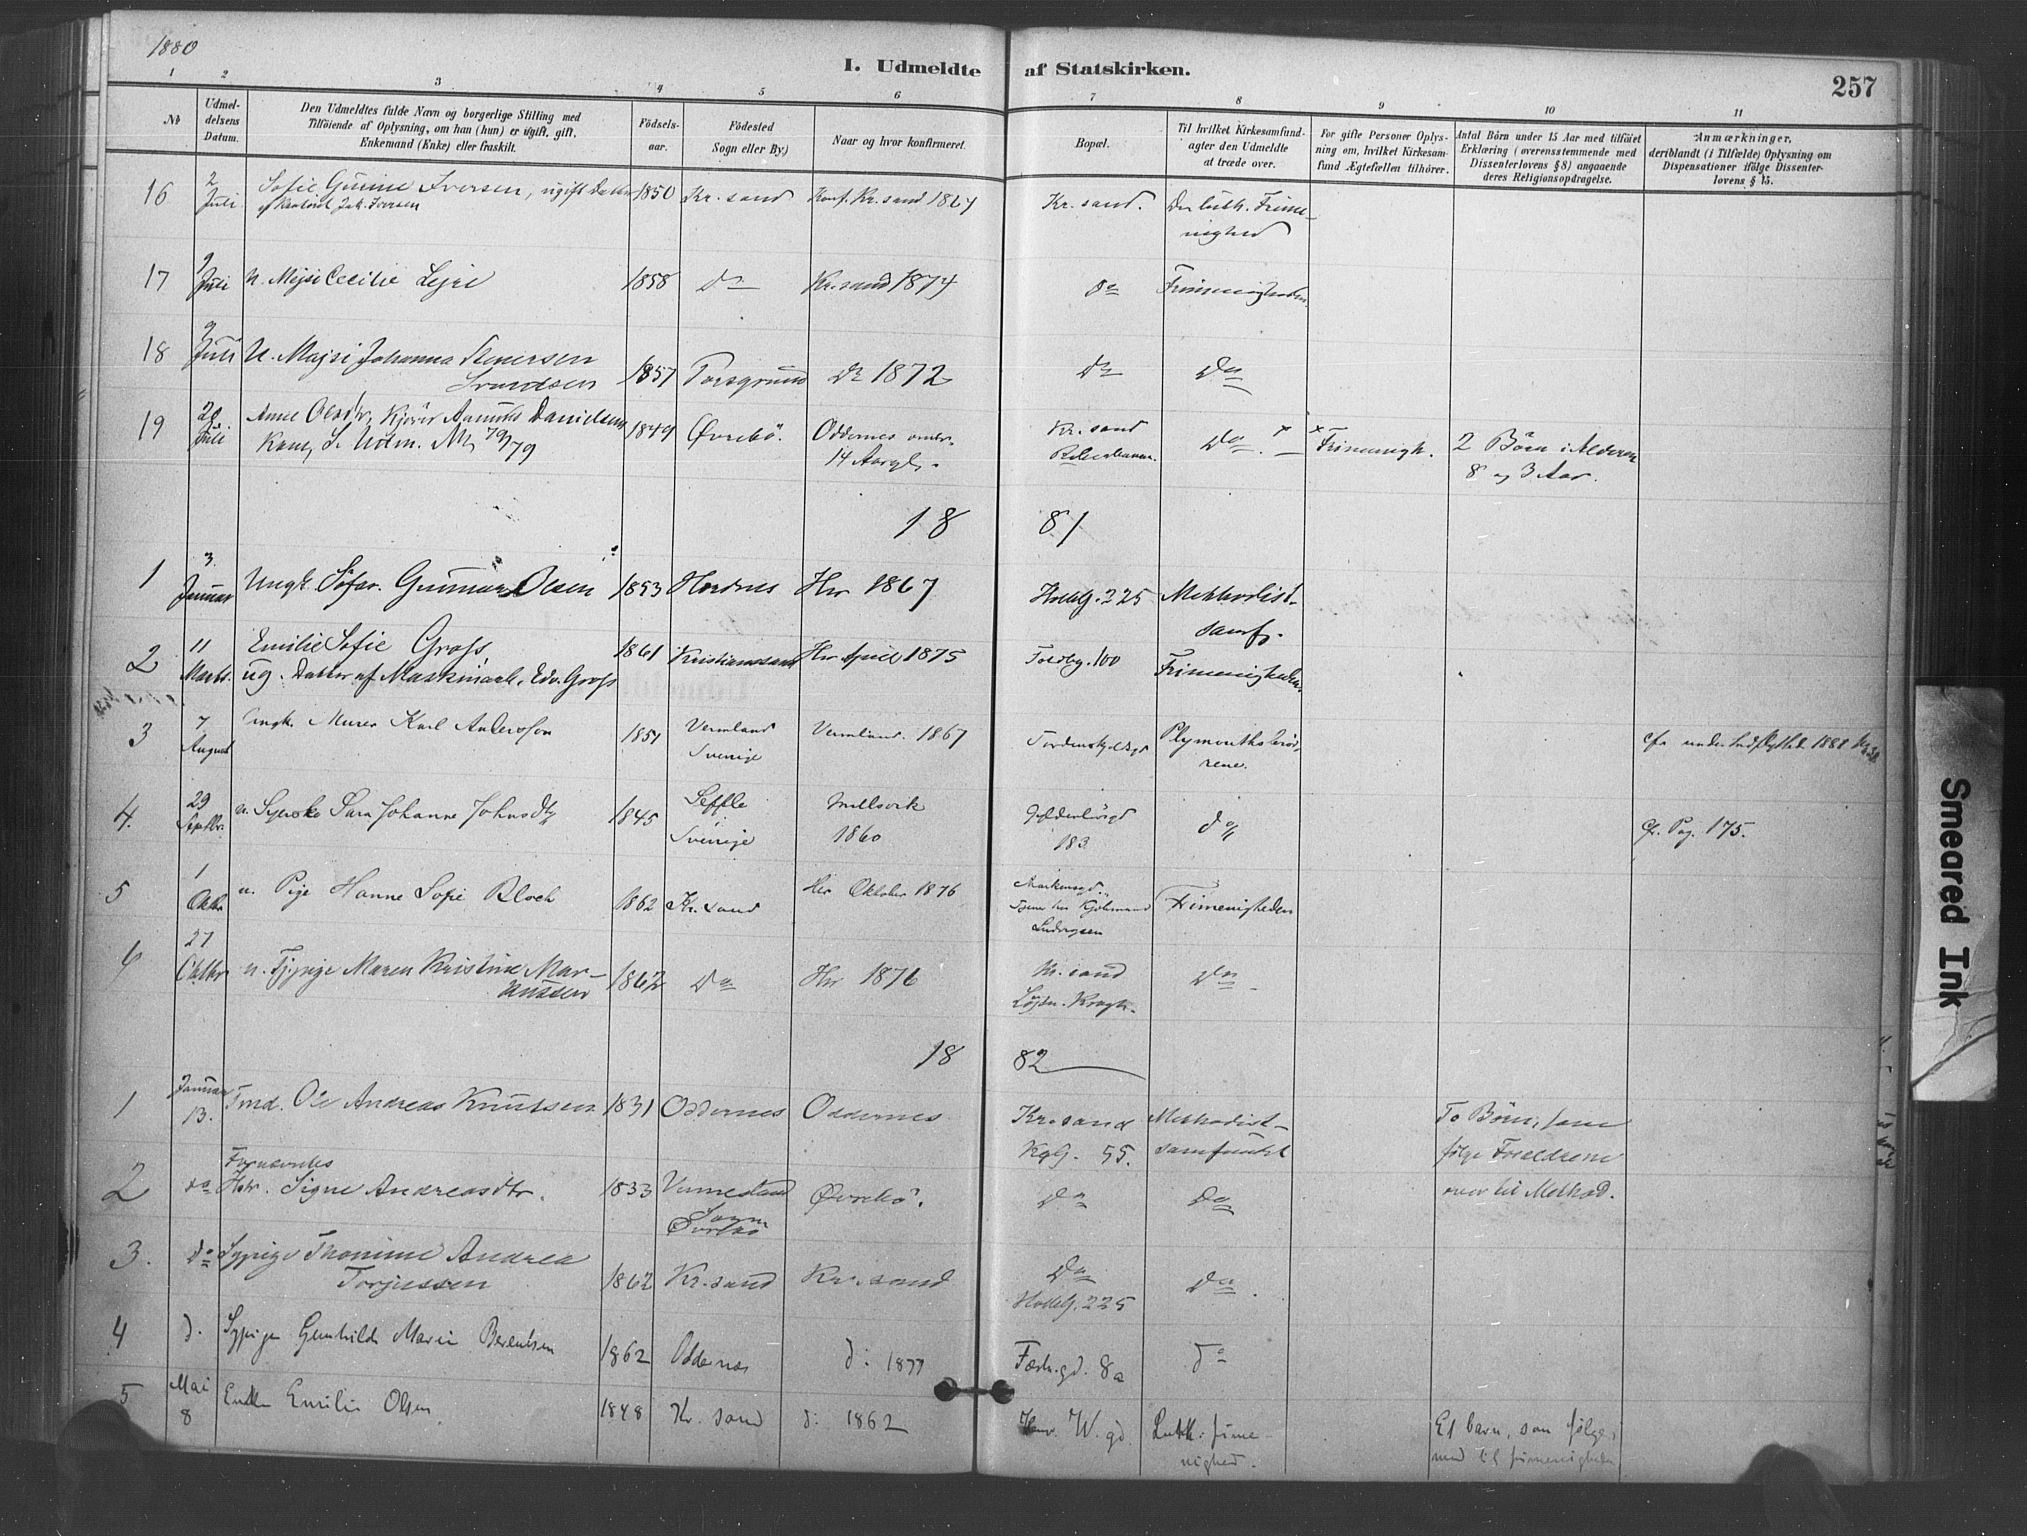 1880
I. Udmeldte af Statskirken.
257
1 2 3 4 5 6 7 8 9 10 11
No
Udmeldelsens Datum.
Den Udmeldtes fulde Navn og borgerlige Stilling med
Tilføiende af Oplysning, om han (hun) er ugift, gift,
Enkemand (Enke) eller fraskilt.
Fødselsaar.
Fødested
Sogn eller By.)
Naar og hvor konfirmeret.
Bopæl.
Til hvilket Kirkesamfund
agter den Udmeldte
at træde over.
For gifte Personer Oplysning om, hvilket Kirkesamfund Ægtefællen tilhører.
Antal Børn under 15 Aar med tilføiet
Erklæring (overensstemmende med
Dissenterlovens § 8) angaaende
deres Religionsopdragelse.
Anmærkninger,
deriblandt (i Tilfælde) Oplysning om
Dispensationer ifølge Dissenterlovens § 15.
16 2 Juli Sofie Gurine Iversen, ugift Datter 1850 Kr. sand Konf. Kr. sand 1864 Kr. sand. Den luth. Frimenighed
17 9 Juli U. Cecilie 1858 Do Kr. sand 1874 Do Frimenigheden.
18 9 Juli U. Johanna 1857 Porsgrund Do 1872 Do Do
19 Juli Anne Danielsen 1849 Øvrebø. Oddernes
14 Aar Kr. sand Do x x Frimenigh. 2 Børn i Alderen
8 og 3 Aar.
18 81
1 3. Januar Ungk. Gunnar Olsen 1853 Her 1867 HolbG. 225 Methodistsamf.
2 11 Marts. Emilie Sofie Gross
ug. Datter af Maskinarb. Edv. Gross 1861 Kristianssand Her April 1875 Toldbg. 100 Frimenigheden.
3 7 August Ungk. Murer Karl Andersson 1851 Vermland
Sverige Vermland. 1867 Tordenskjoldsgd Plymouthsbrødrene. cfr under Indflyttede 1881
4. 29 Septbr. u. Syerske Sara Johanne 1845 Seffle
Sverige 1860 Gyldenløvsgd
183 do cfr. Pag. 175.
5 1 Oktbr u. Pige Hanne Sofie Bloch 1862 Kr. sand Her Oktober 1876 Markensgd.
Ludvigsen Frimenigheden
6 27 Oktbr u. Tjpige Maren Kristine Markussen 1862 Do Her 1876 Kr. sand
Do
18 82
1 Januar 13. Ole Andreas Knutsen 1831 Oddernes Oddernes Kr. sand
KgG. 55. Methodistsamfundet To Børn, som
følge Forældrene
over til Method.
2 do Fornævntes
Hstr. Signe Andreasdtr. 1833 Vennesland
Sogn
Øvrebø Øvrebø. Do Do
3. do Sypige Thomine Andrea
Torjussen 1862 Kr. sand Kr. sand Do
HolbG. 225 Do
4 d. Sypige Gunhilde Marie Berentsen 1862 Oddernes d: 1877 Fæstn.gd. 8a do
5 Mai 8 Enke Emilie Olsen 1848 Kr. sand d: 1862 Henr. W. gd. Luth. frimenighed. Et barn, som følger
med til frimenigheden
Smeared Ink